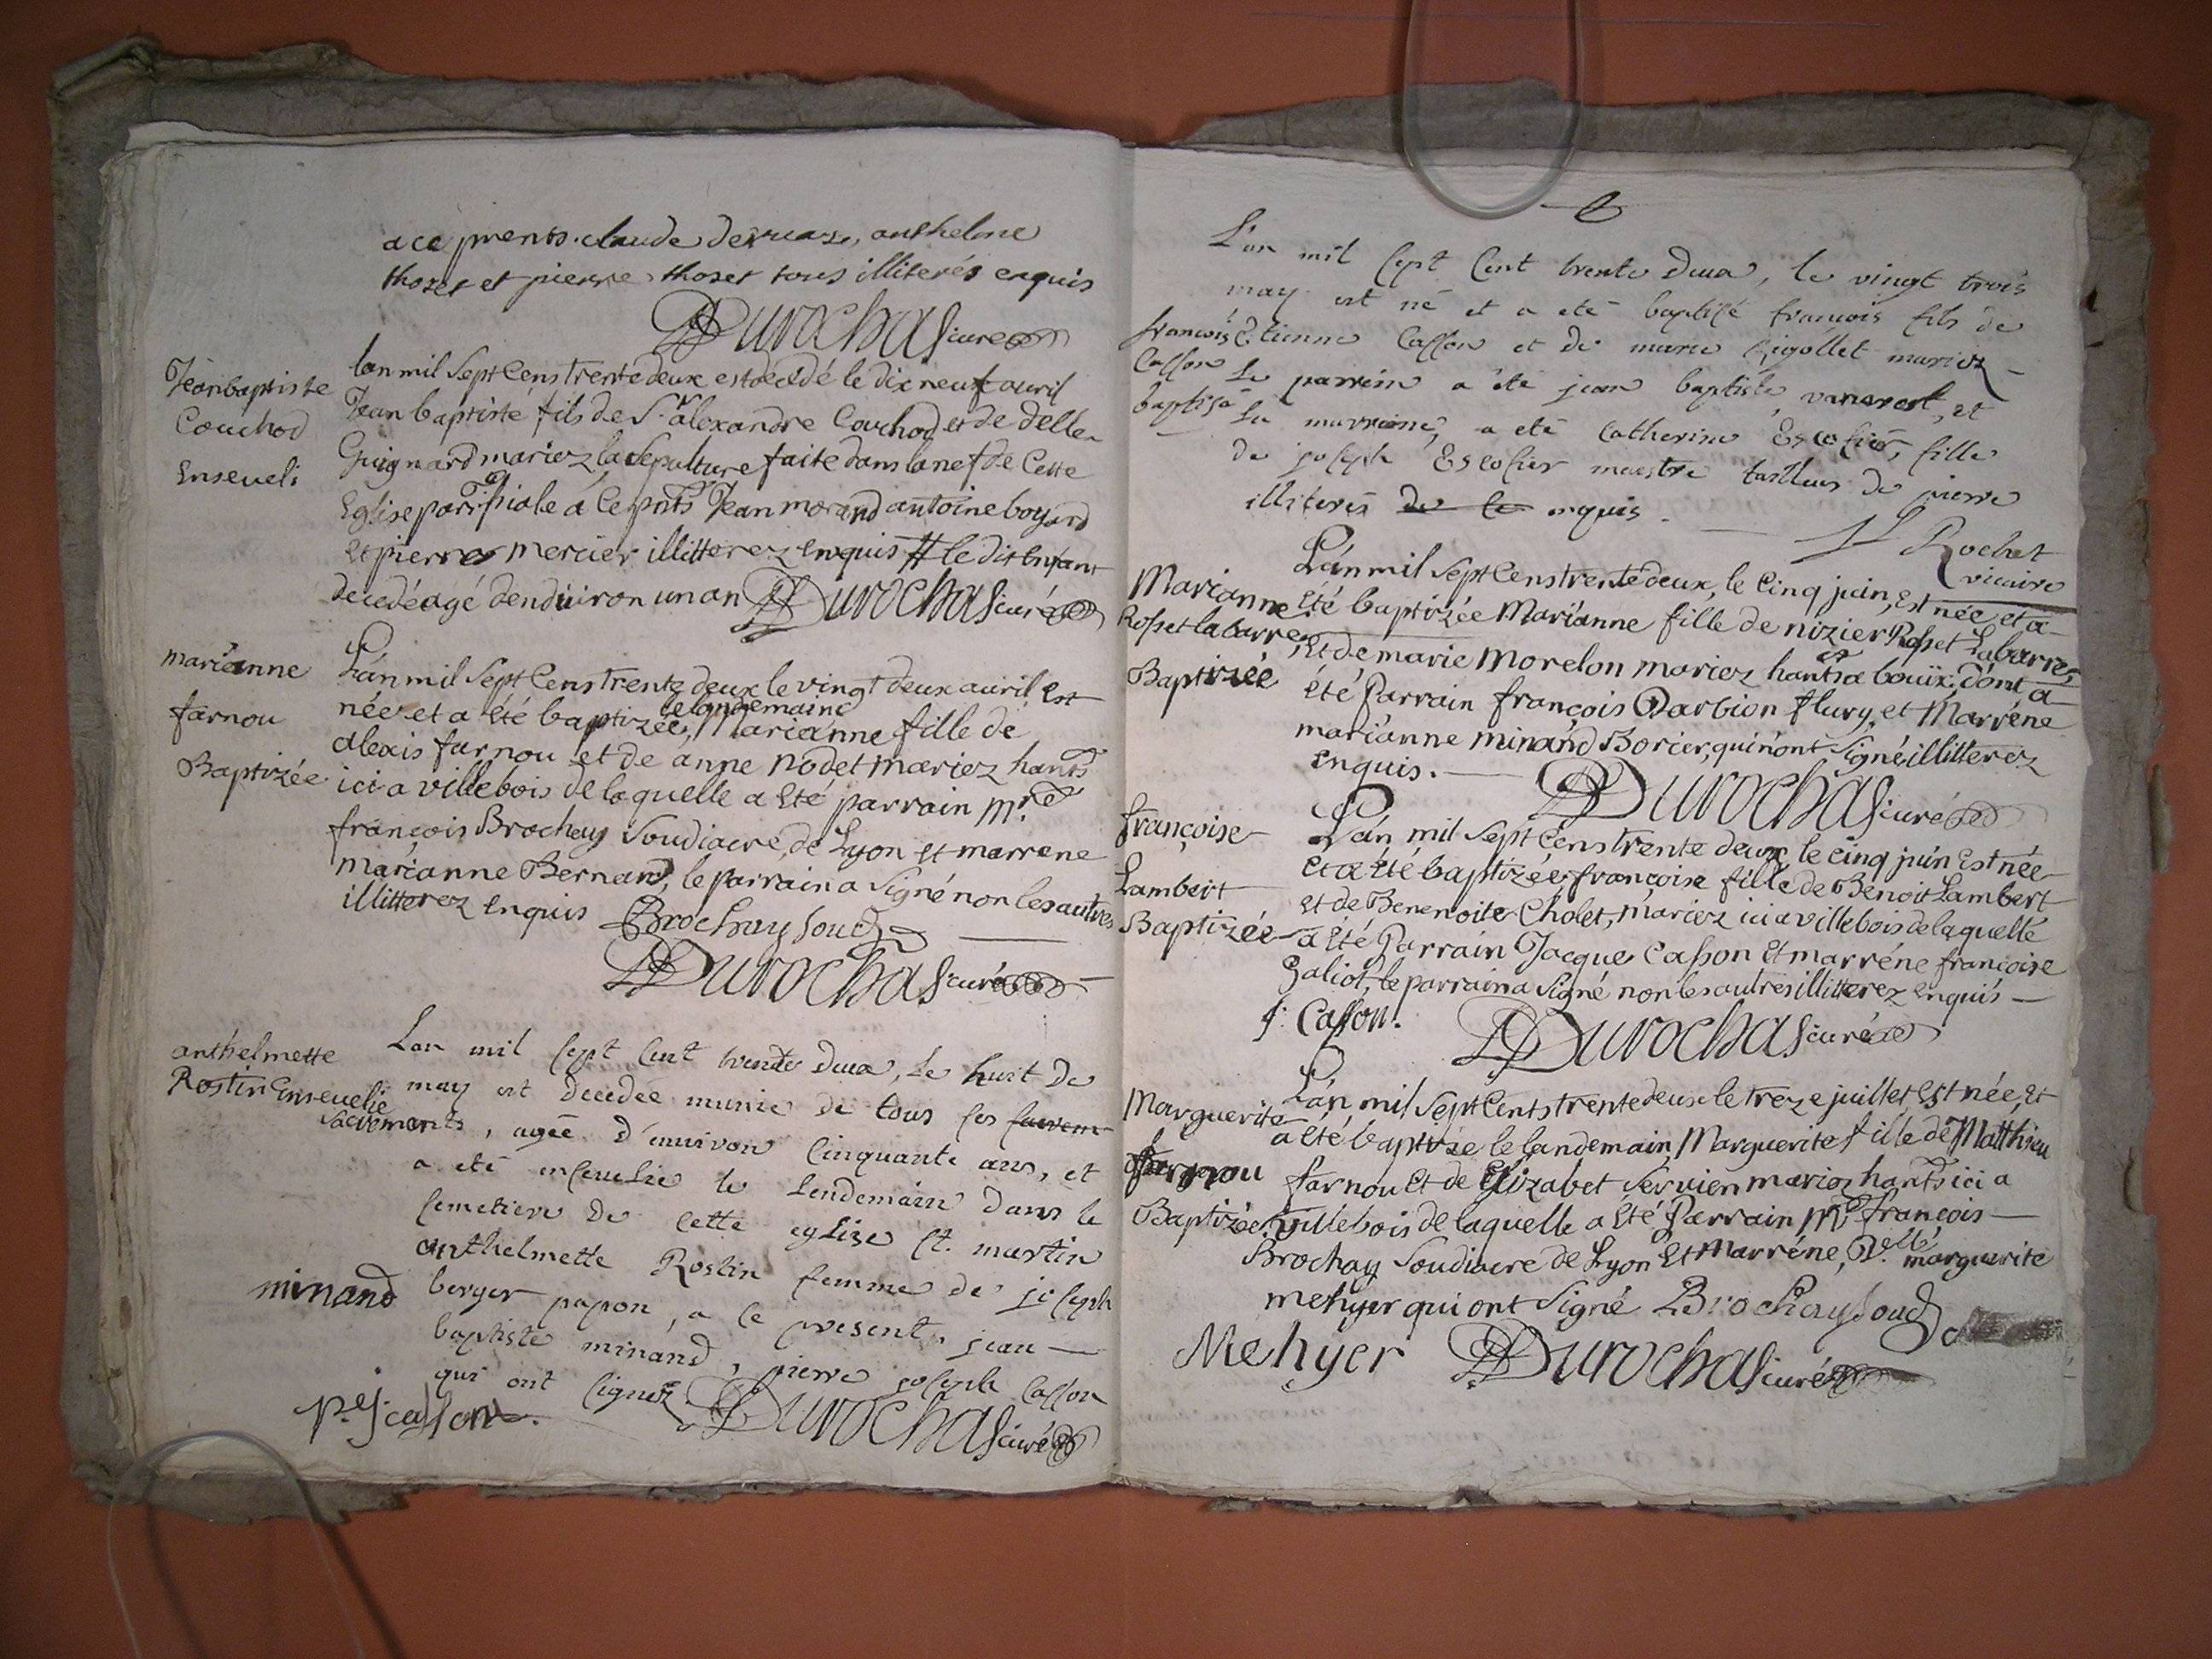 a ce prents. claude dervars, anthelme
thoset et pierre thoset tous illiterés enquis
Durochas curé
Jean baptiste
Couchod
Enseveli
lan mil Sept Cens trente deux est décédé le dix neuf avril
Jean baptiste fils de Sr. alexandre Couchod et de delle
Guignard mariez la sepulture faite dans la nef de Cette
Eglise paroissiale a Ce pnts Jean morand antoine boyard
Et pierre mercier illitterez enquis # le dit Enfant
decedé agé denduiron un an Durochas curé
marianne
farnou
Baptizée
L'an mil Sept Cens trente deux le vingt deux auril Est
née et a Eté baptizée, le landemaine Marianne fille de
alexis farnou et de anne nodet mariez hants
ici a villebois de laquelle a Eté parrain mre
françois Brochay Soudiacre de Lyon Et marrene
marianne Bernard, le parrain a Signé non les autres
illitterez Enquis Brochay Soud
Durochas curé
anthelmette
Rostin Ensevelie
Lan mil sept cent trente deux, le huit de
may est decedée munie de tous ses sacrem
sacrements, agée d'environ cinquante ans, et
a eté ensevelie le lendemain dans le
cemetiere de cette eglise st. martin
anthelmette Rostin femme de joseph
berger papon, a ce present, jean
baptiste minand, pierre joseph casson
qui ont signez Durochas curé
minand
p. j. casson.
L'an mil sept cent trente deux, le vingt trois
may est né et a eté baptisé françois fils de
françois
Casson
baptisé
Etienne Casson et de marie Rigollet mariez
Le parrein a eté jean baptiste vanarest, et
La marreine, a eté Catherine Escofier, fille
de joseph Escofier maistre tailleur de pierre
illiterés de ce enquis.
Rochet
vicaire
Marianne
Rosset labarre
Baptizée
L'an mil Sept Cens trente deux, le Cinq juin, est née et a
Eté baptizée Marianne fille de nizier Rosset Labarre,
Et de marie Morelon mariez hants a bouix; dont a
été Parrain françois Darbion flury, et Marréne
marianne minand Borier, qui n'ont Signé illitterez
enquis. Durochas curé
françoise
Lambert
Baptizée
L'an mil Sept Cens trente deux, le Cinq juin Est née
Et a Eté baptizée françoise fille de Benoit Lambert
Et de Benenoite Cholet, mariez ici a villebois de laquelle
a Eté Parrain Jacque Casson Et marréne françoise
Galiot, le parrain a Signé non les autres illitterez Enquis
j. Casson. Durochas curé
Marguerite
farnou
Baptizée
L'an mil Sept Cents trente deux le treze juillet Est née, Et
a Eté baptizée le landemain Marguerite fille de Matthieu
farnou Et de Elizabet Servien mariez hants ici a
villebois de laquelle a Eté Parrain Mre françois
Brochay Soudiacre de Lyon Et Marréne, Delle marguerite
mehyer qui ont Signé Brochay Soud
Mehyer Durochas curé